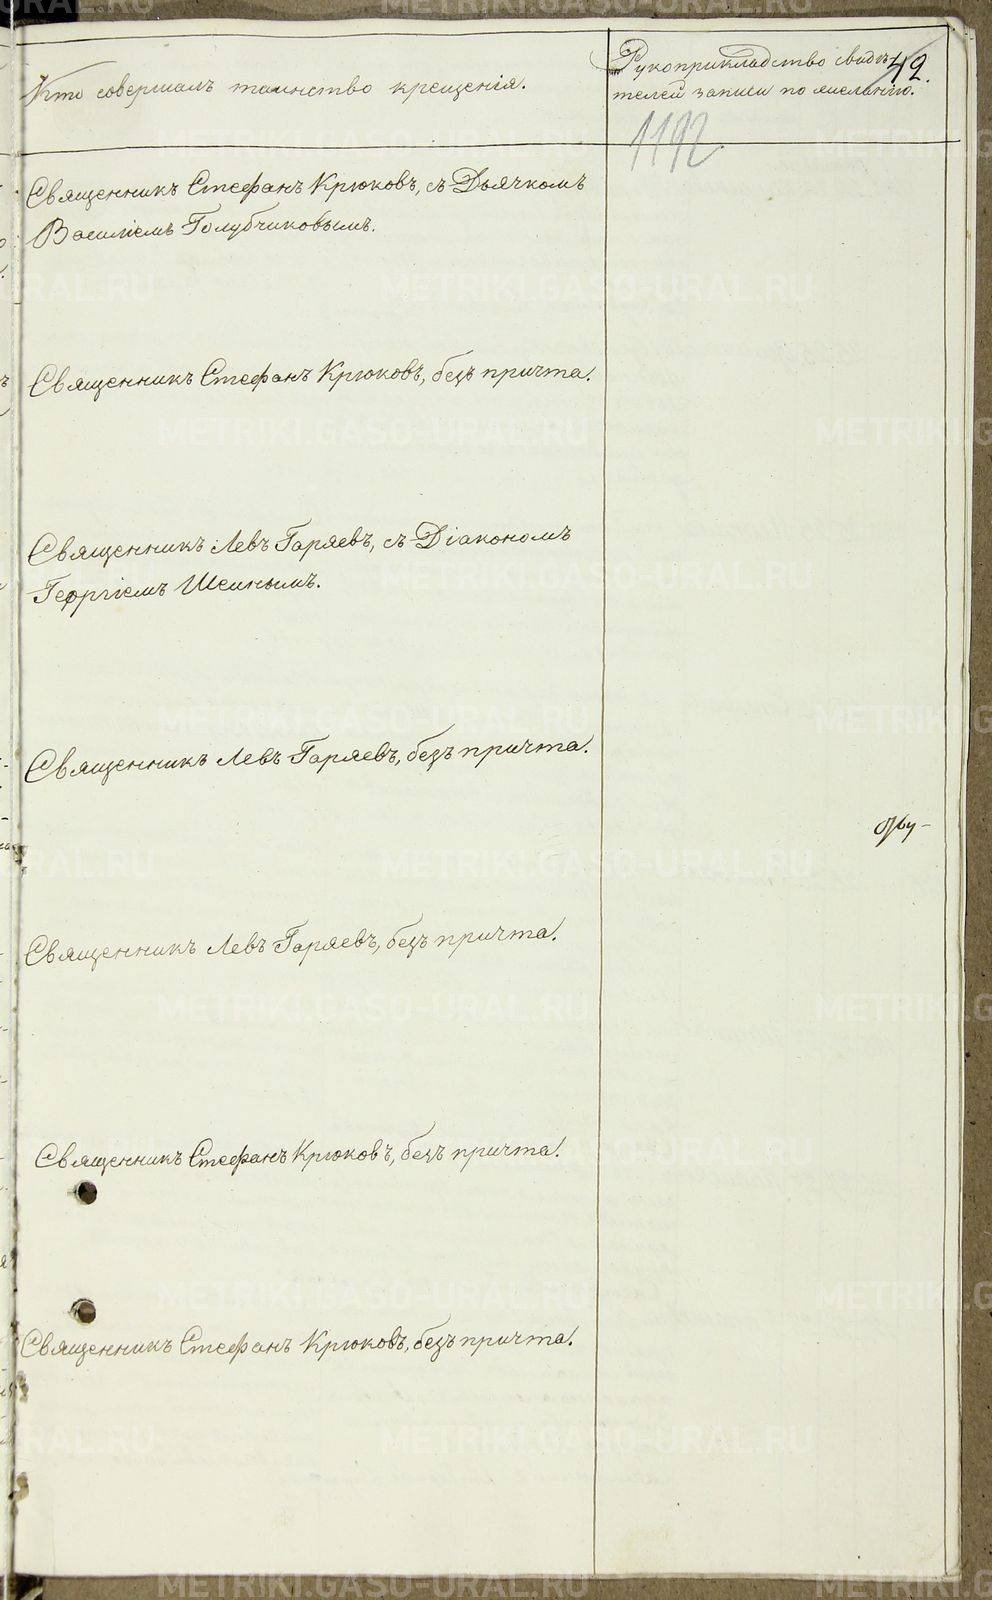 Кто совершалъ таинство крещенія.
Рукоприкладство свидѣ-
телей записи по желанію.
42.
1192
Священникъ Стефанъ Крюковъ, съ Дьячкомъ
Василіемъ Голубчиковымъ.
Священникъ Стефанъ Крюковъ, безъ причта.
Священникъ Левъ Гаряевъ, съ Діакономъ
Георгіемъ Шеиным.
Священникъ Левъ Гаряевъ, безъ причта.
Священникъ Левъ Гаряевъ, безъ причта.
Священникъ Стефанъ Крюковъ, безъ причта.
Священникъ Стефанъ Крюковъ, безъ причта.
METRIKI.GASO-URAL.RU